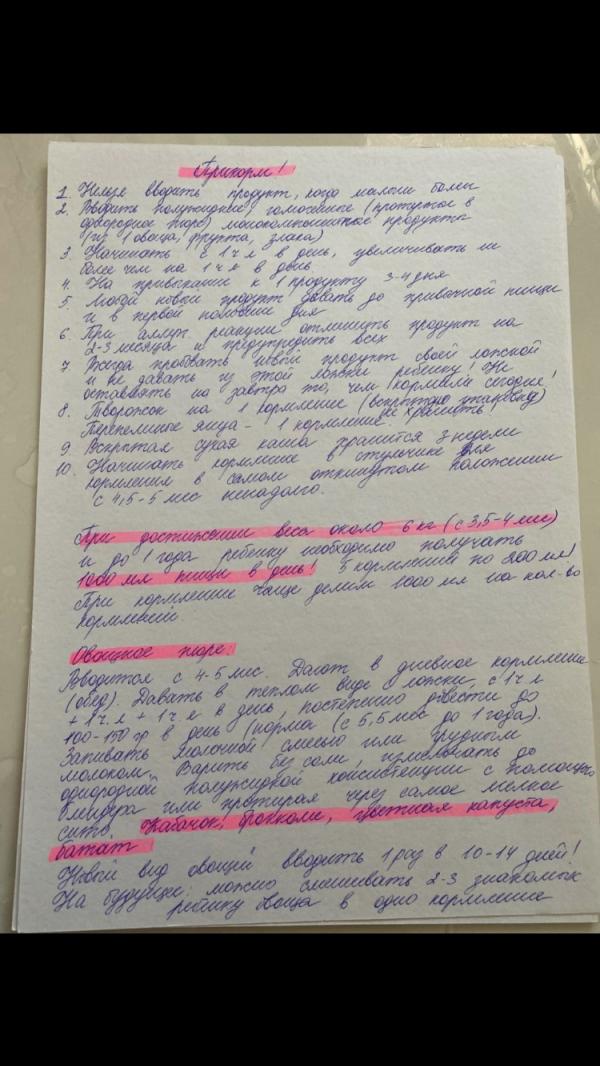 Прикорм!
1. Нельзя вводить продукт, когда малыш болен
2. Вводить полужидкие, гомогенные (протертые в
однородное пюре) монокомпонентные продукты
(из 1 овоща, фрукта, злака)
3. Начинать с 1 ч л в день, увеличивать не
более чем на 1 ч л в день
4. На привыкание к 1 продукту 3-4 дня
5. Любой новый продукт давать до привычной пищи
и в первой половине дня
6. При аллерг. реакции отменить продукт на
2-3 месяца и предупредить всех
7. Всегда пробовать новый продукт своей ложкой
и не давать из этой ложки ребенку! Не
оставлять на завтра то, чем кормили сегодня!
8. Творожок на 1 кормление (вскрытую упаковку)
не хранить!
Перепелиные яйца - 1 кормление.
9. Вскрытая сухая каша хранится 3 недели
10. Начинать кормление в стульчике для
кормления в самом откинутом положении
с 4,5-5 мес ненадолго.
При достижении веса около 6 кг (с 3,5-4 мес)
и до 1 года ребенку необходимо получать
1000 мл пищи в день! 5 кормлений по 200 мл!
При кормлении чаще делим 1000 мл на кол-во
кормлений.
Овощное пюре:
Вводится с 4-5 мес. Дают в дневное кормление
(обед). Давать в теплом виде с ложки, с 1 ч л
+ 1 ч. л + 1 ч л в день, постепенно довести до
100-150 гр в день (норма (с 5,5 мес до 1 года).
Запивать молочной смесью или грудным
молоком. Варить без соли, измельчать до
однородной полужидкой консистенции с помощью
блендера или протирая через самое мелкое
сито. Кабачок, брокколи, цветная капуста,
батат!
Новый вид овощей вводить 1 раз в 10-14 дней!
На будущее: можно смешивать 2-3 знакомых
ребенку овоща в одно кормление